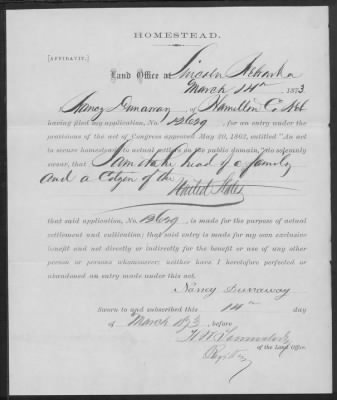 HOMESTEAD.
[AFFIDAVIT.]
Land Office at Lincoln Nebraska
March 14th 1873
I, Nancy Dunaway, of Hamilton Co Neb
having filed my application, No. 12629, for an entry under the
provisions of the act of Congress approved May 20, 1862, entitled "An act
to secure homesteads to actual settlers on the public domain," do solemnly
swear, that I am the head of a family
and a Citizen of the
United States
that said application, No. 12629 is made for the purpose of actual
settlement and cultivation; that said entry is made for my own exclusive
benefit and not directly or indirectly for the benefit or use of any other
person or persons whomsoever; neither have I heretofore perfected or
abandoned an entry made under this act.
Nancy Dunaway
Sworn to and subscribed this 14th day
of March 1873, before
of the Land Office.
Register